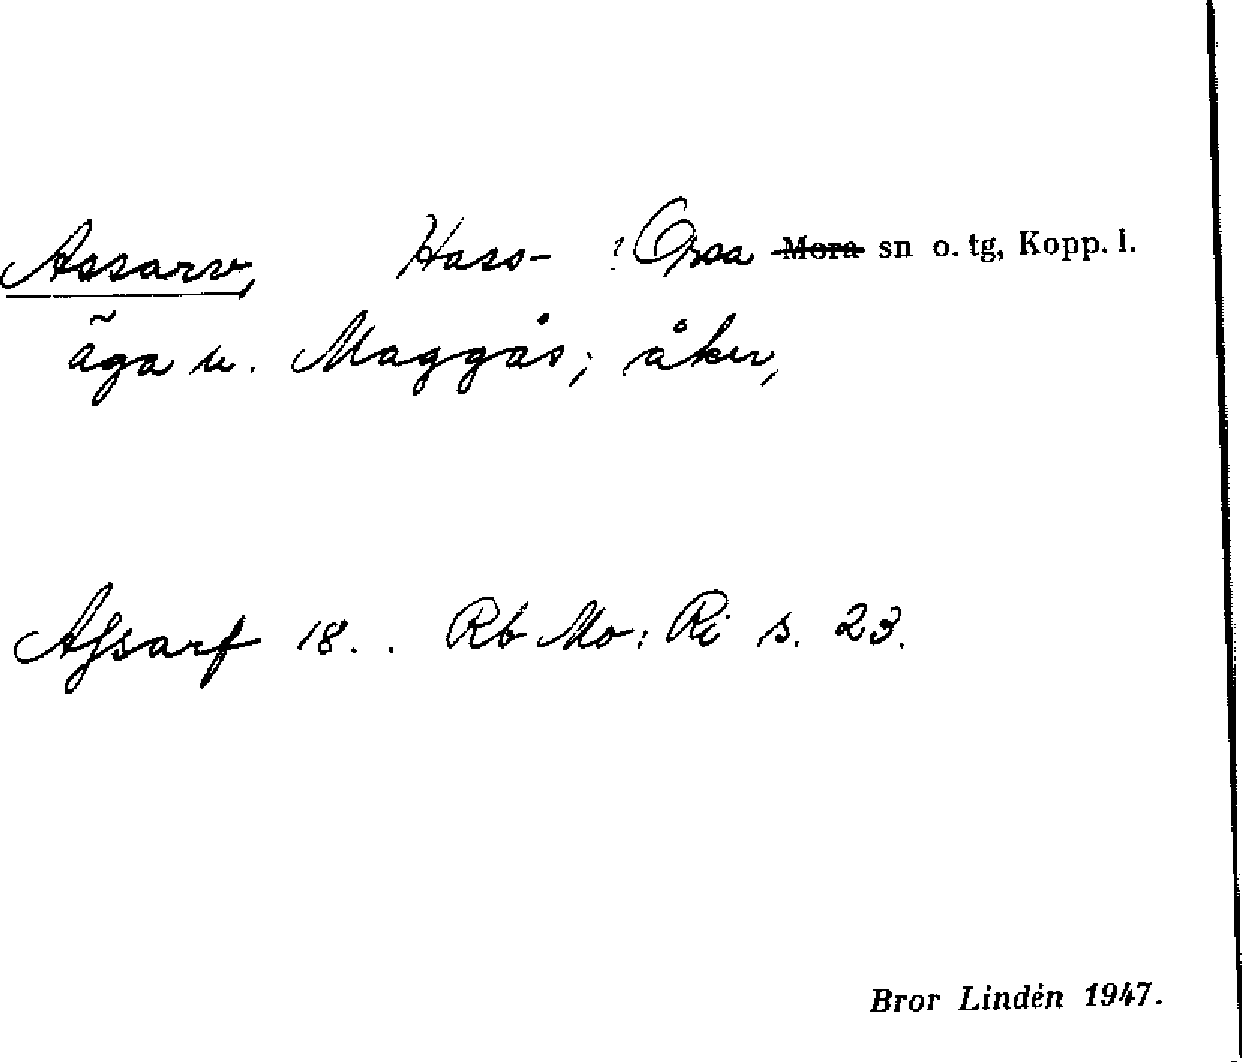 Assarv, Hass- Orsa Mora sn o. tg, Kopp. l.
äga u. Maggås; åker,
Assarf 18.. Rb Mo: Ri s. 23.
Bror Lindén 1947.